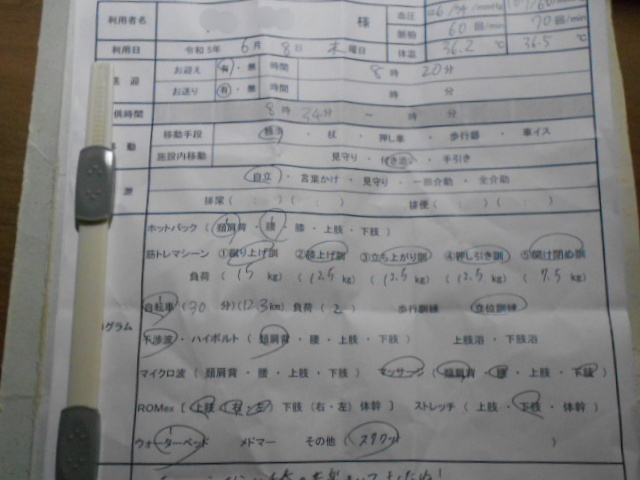 利用者名 様 血圧
脈拍 60 回/min 70 回/min
利用日 令和5年 6月 8日 木曜日 体温 36.2 ℃ 36.5 ℃
送迎 お迎え 有・無 時間 8 時 20 分
お送り 有・無 時間 時 分
供時間 8 時 34 分 ~ 時 分
移動 移動手段 ・ 杖 ・ 押し車 ・ 歩行器 ・ 車イス
施設内移動 見守り ・ 付き添い ・ 手引き
自立 ・ 言葉かけ ・ 見守り ・ 一部介助 ・ 全介助
排尿 ( : ) ( : ) 排便 ( : ) ( : )
ホットパック ( 頚肩背 ・ 腰 ・ 膝 ・ 上肢 ・ 下肢 )
筋トレマシーン ①蹴り上げ訓 ②膝上げ訓 ③立ち上がり訓 ④押し引き訓 ⑤開け閉め訓
負荷 ( 15 kg) ( 12.5 kg) ( 12.5 kg) ( 12.5 kg) ( 7.5 kg)
自転車 (30 分)(12.3km) 負荷 ( 2 ) 歩行訓練 立位訓練
ログラム
干渉波 ・ ハイボルト ( 頚肩背 ・ 腰 ・ 上肢 ・ 下肢 ) 上肢浴 ・ 下肢浴
マイクロ波 ( 頚肩背 ・ 腰 ・ 上肢 ・ 下肢 ) マッサージ ( 頚肩背 ・ 腰 ・ 上肢 ・ 下肢 )
ROMex [ 上肢 (右・左) 下肢 (右・左) 体幹 ] ストレッチ ( 上肢 ・ 下肢 ・ 体幹 )
ウォーターベッド メドマー その他 ( スクワット )